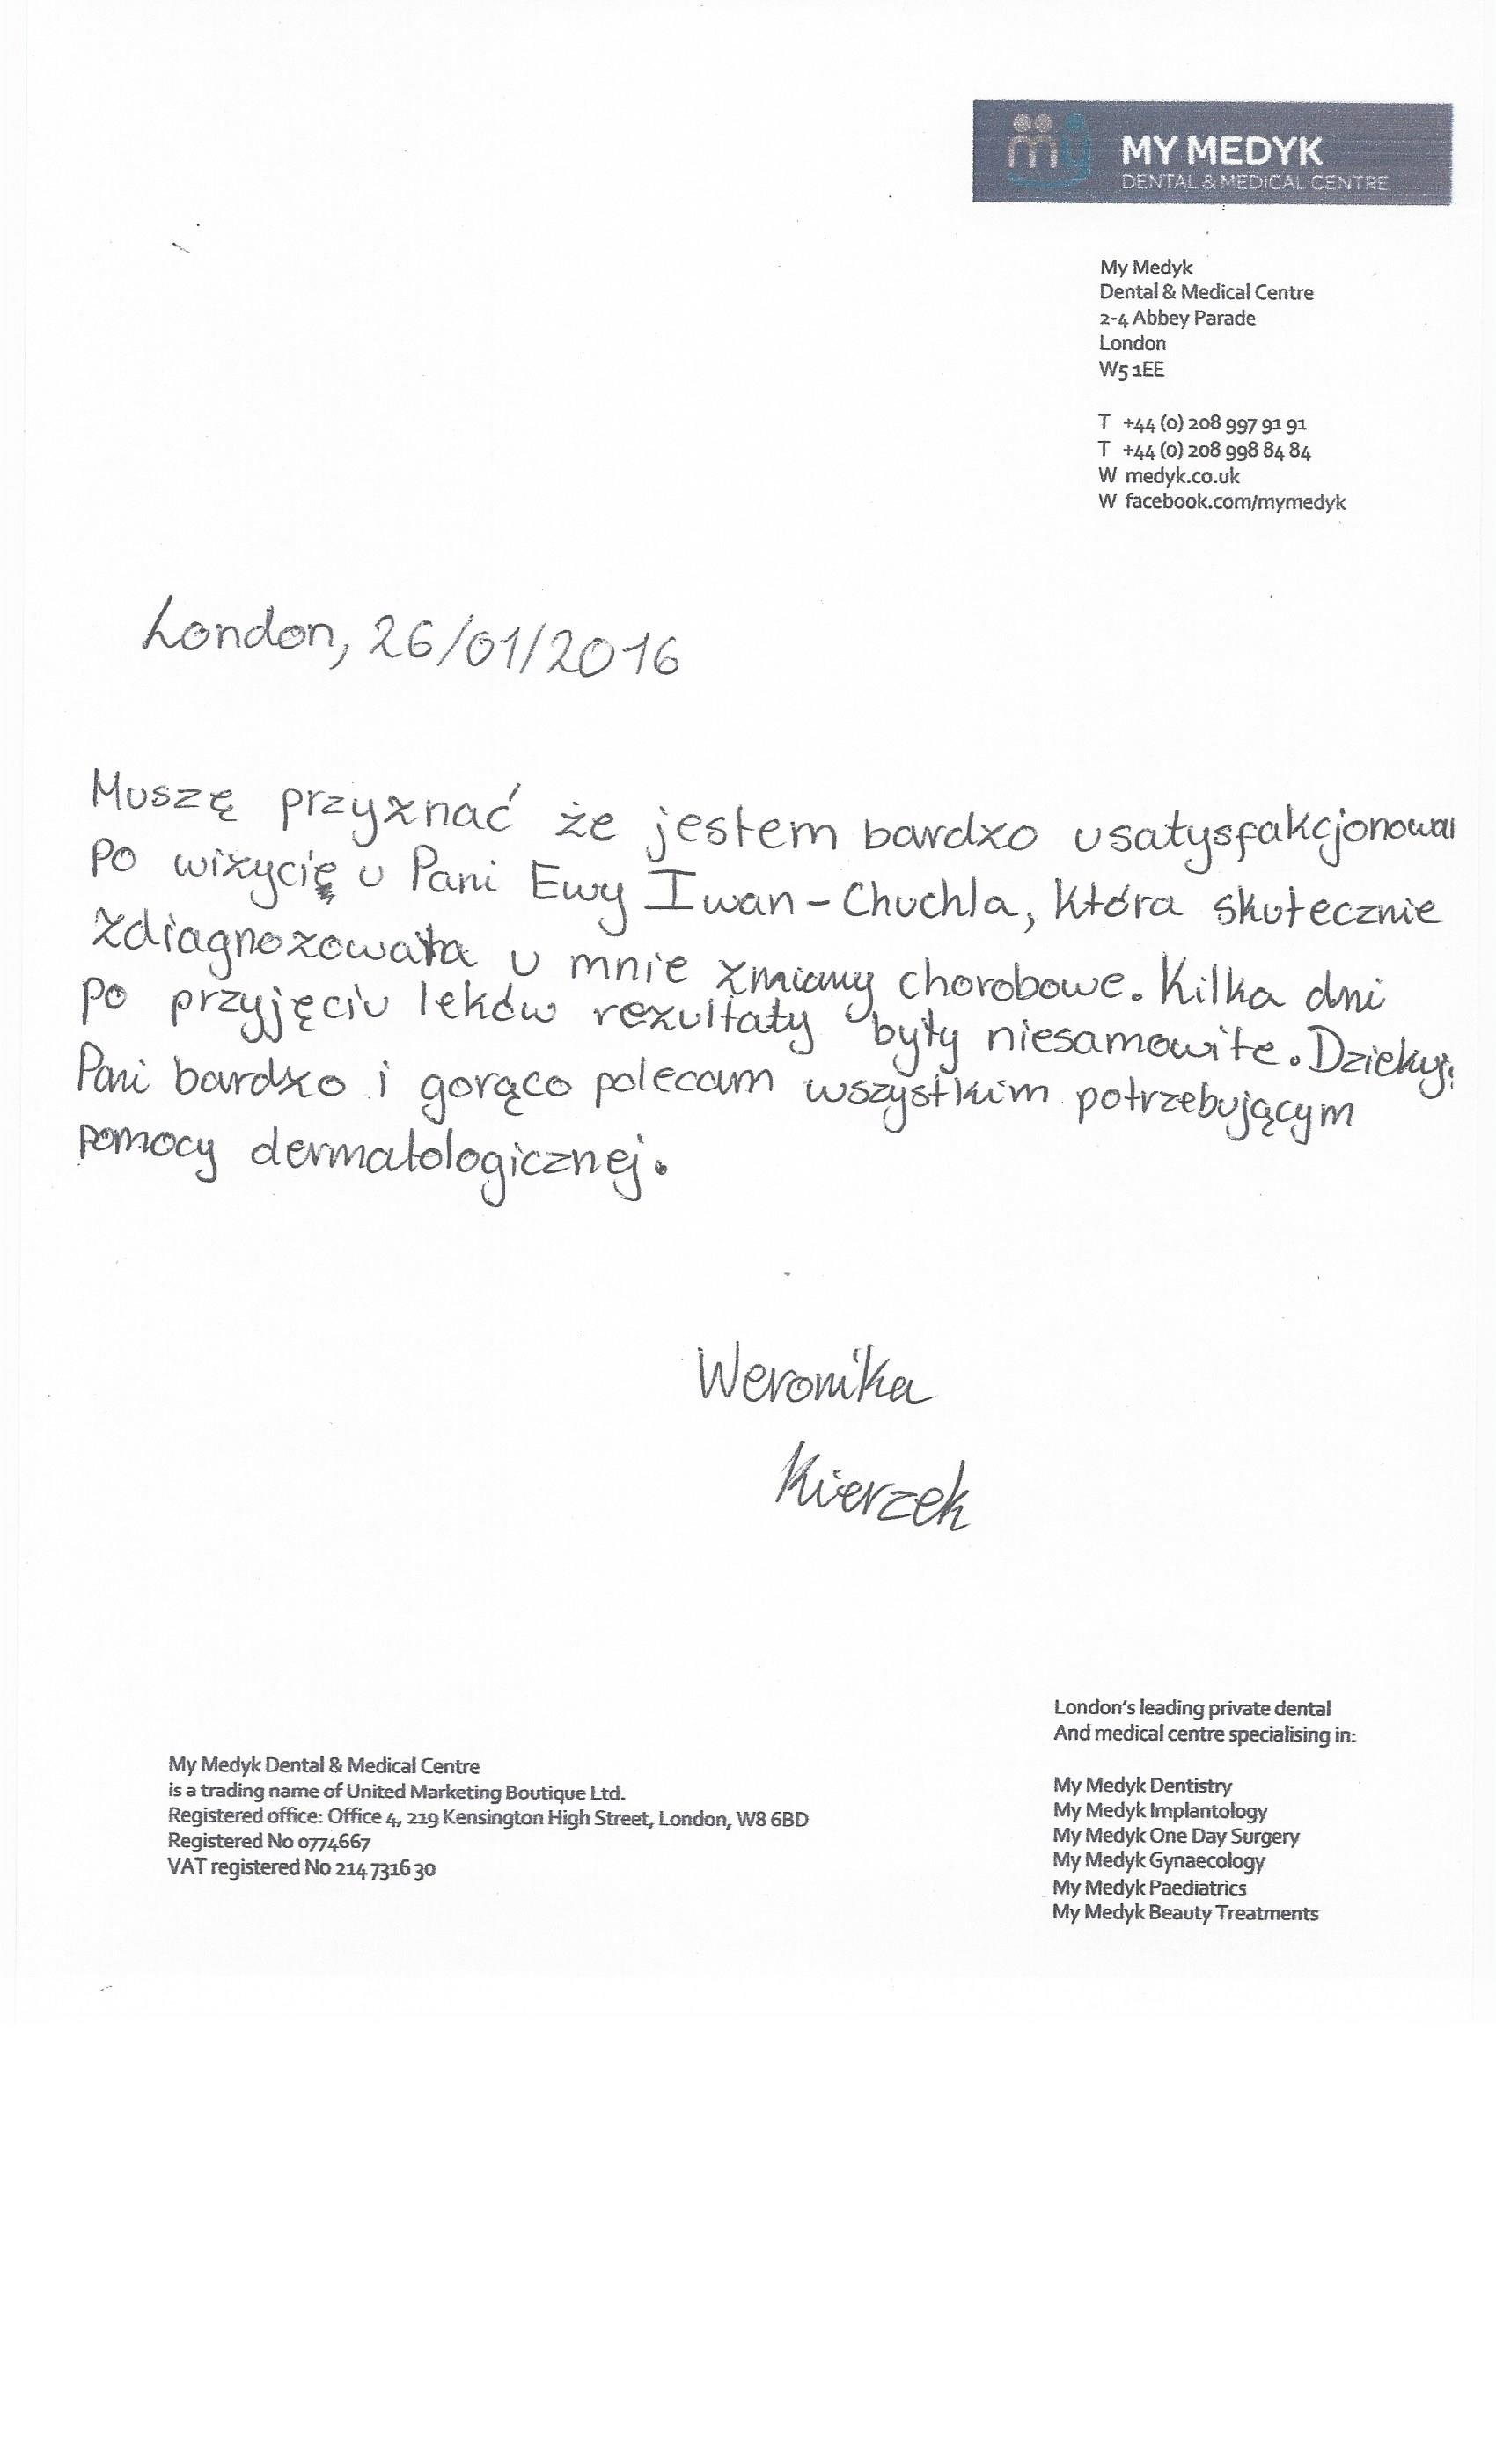 my
MY MEDYK
DENTAL & MEDICAL CENTRE
My Medyk
Dental & Medical Centre
2-4 Abbey Parade
London
W5 1EE
T +44 (0) 208 997 91 91
T +44 (0) 208 998 84 84
W medyk.co.uk
W facebook.com/mymedyk
London, 26/01/2016
Muszę przyznać że jestem bardzo usatysfakcjonowa
po wizycie u Pani Ewy Iwan-Chuchla, która skutecznie
zdiagnozowała u mnie zmiany chorobowe. Kilka dni
po przyjęciu leków rezultaty były niesamowite. Dziękuj
Pani bardzo i gorąco polecam wszystkim potrzebującym
pomocy dermatologicznej.
Weronika
Kierzek
London's leading private dental
And medical centre specialising in:
My Medyk Dentistry
My Medyk Implantology
My Medyk One Day Surgery
My Medyk Gynaecology
My Medyk Paediatrics
My Medyk Beauty Treatments
My Medyk Dental & Medical Centre
is a trading name of United Marketing Boutique Ltd.
Registered office: Office 4, 219 Kensington High Street, London, W8 6BD
Registered No 0774667
VAT registered No 214 7316 30